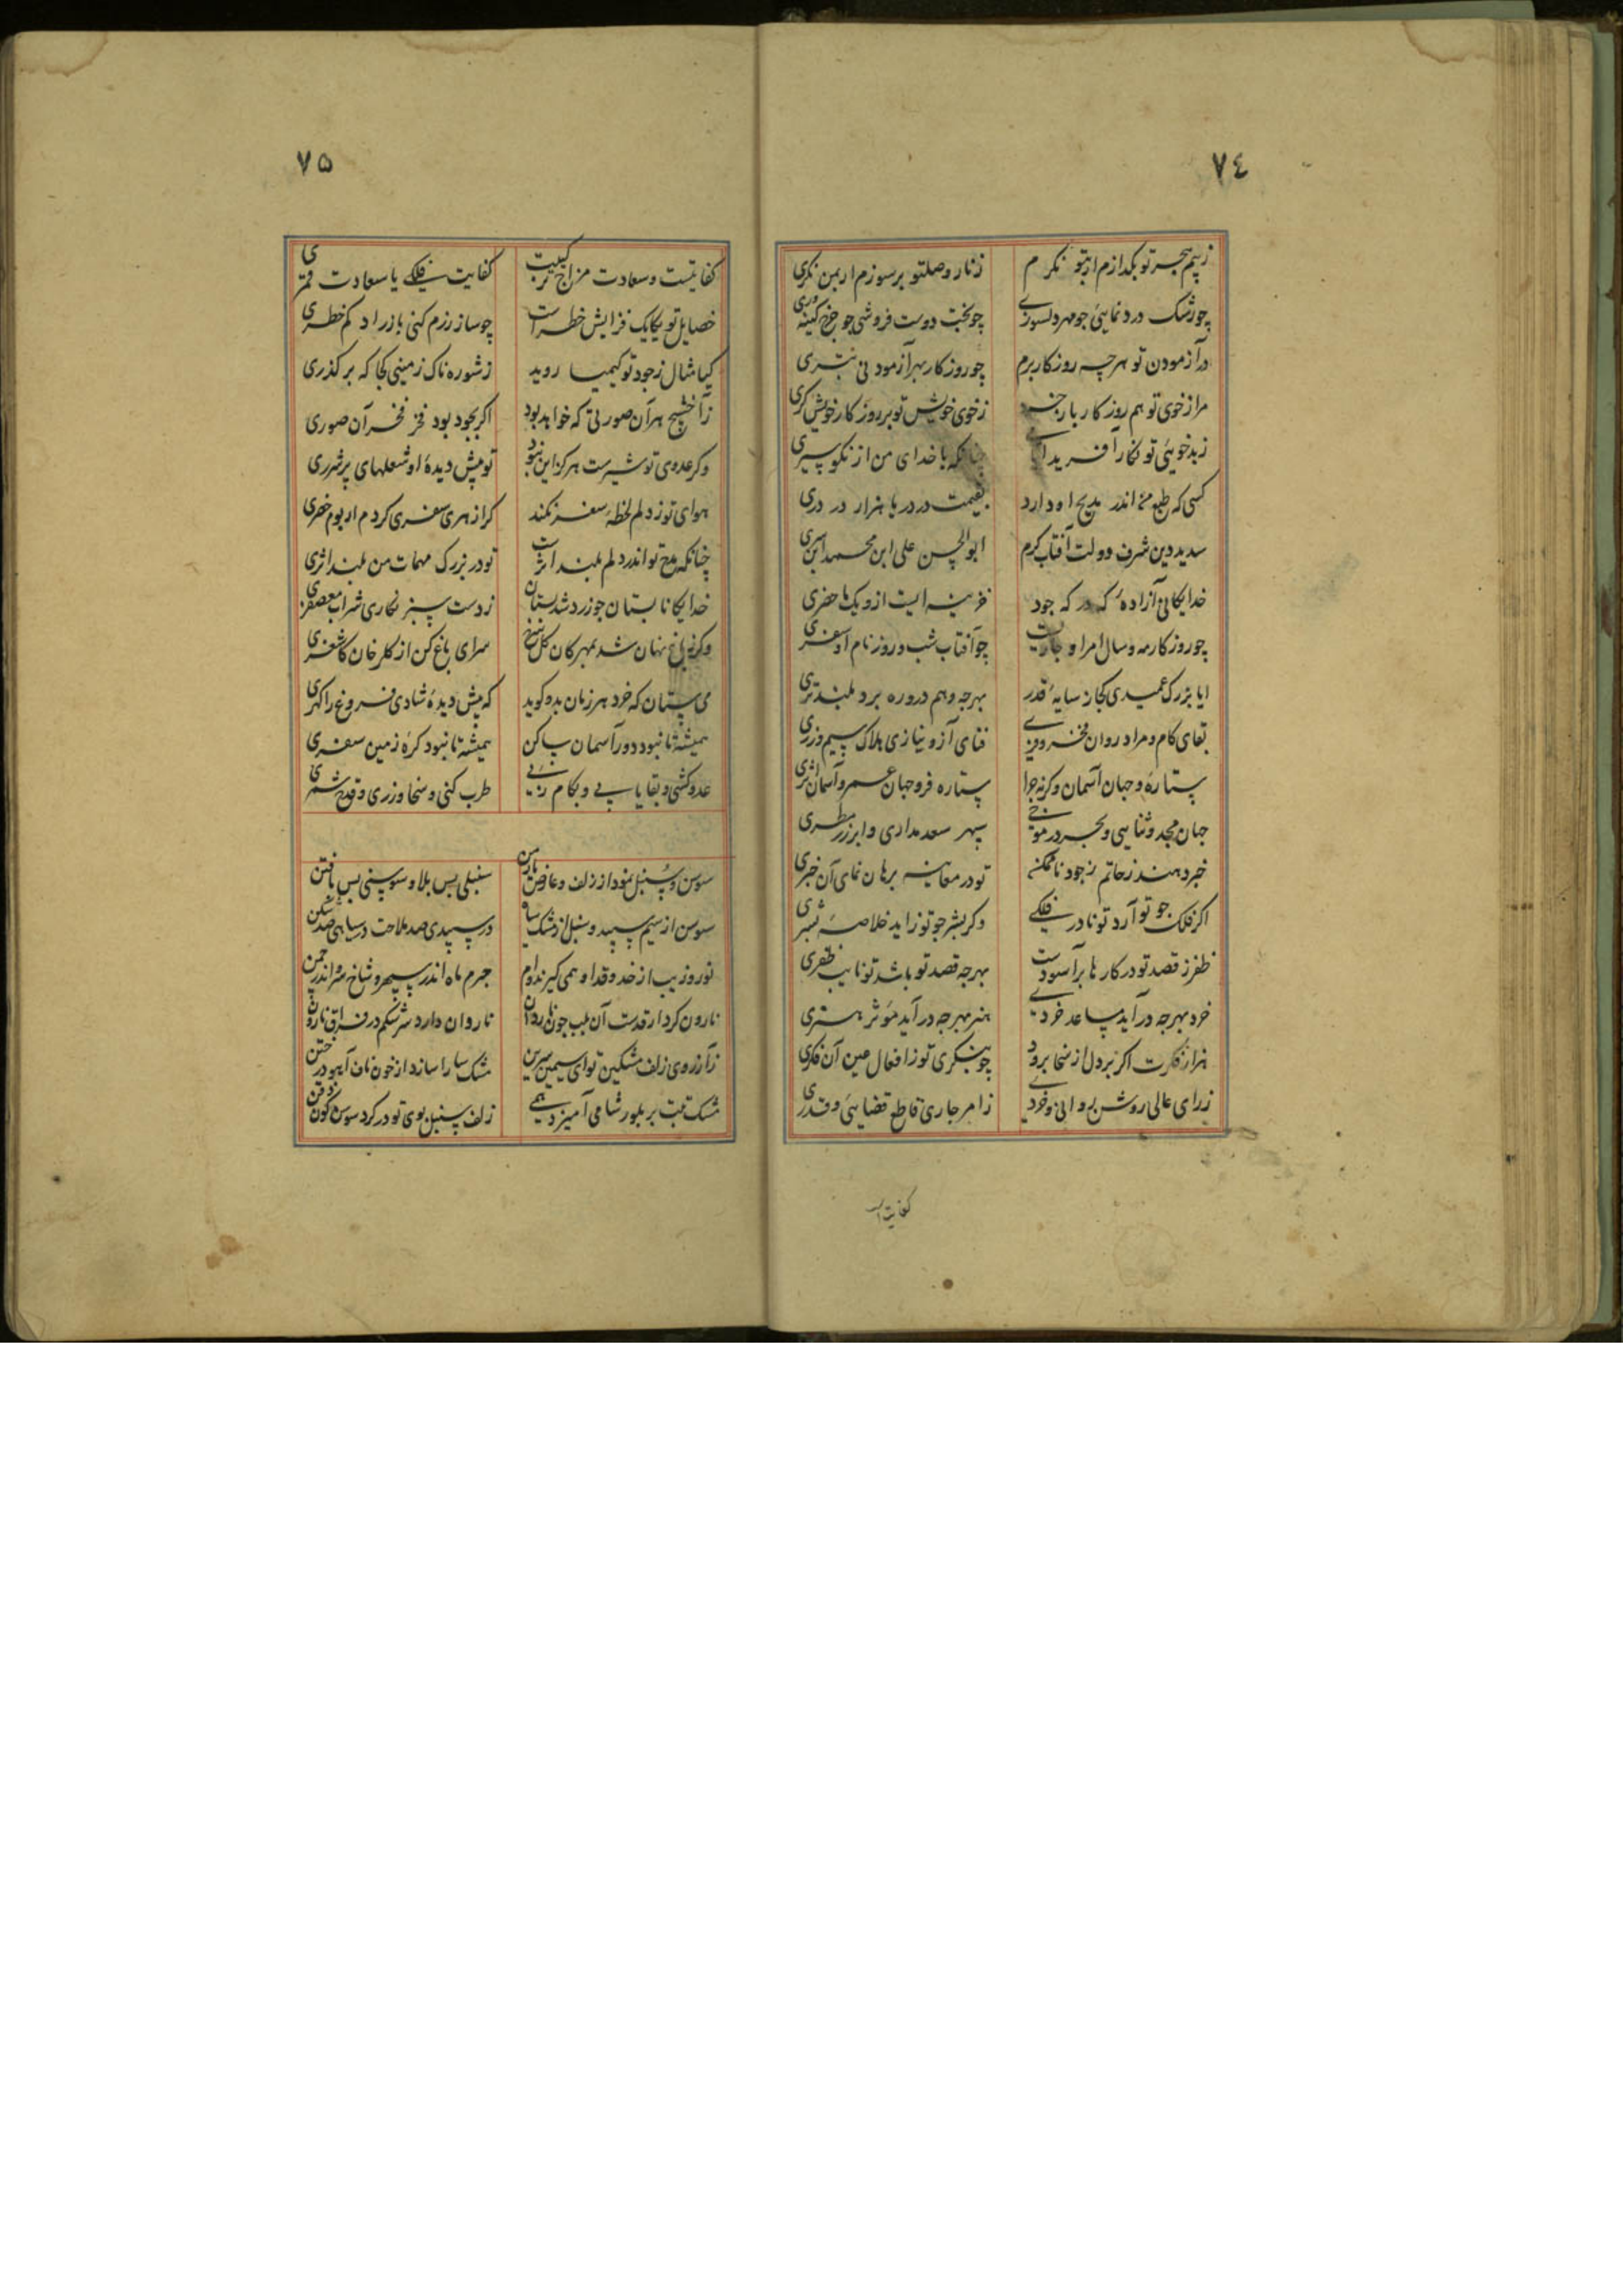 ٧٤
ز بیم هجر تو بگدازم ار بتو نگرم زنار وصلتو برسوزم ار بمن نگری
چو رشک درد نمایئ جو مهر دلسوزے چو بخت دوست فروشی جو چرخ کینه وری
در آزمودن تو هر چه روزکار برم چو روزکار بهر آزمودنی بتری
مرا ز خوی تو هم روزکار بار خرد ز خوی خویش تو بر روزکار خویش کری
ز بد خوئی تو نکارا فریدا با خدای من از نکو سیری
کسی که طبع من اندر مدیح او دارد بقیمت در دریا هزار در دری
سدید دین شرف دولت آفتاب کرم ابو الحسن علی ابن محمد ابن سری
خدایکانی آزاده که در که جود خزینه ایست ازو یک ما حضری
چو روزکار مه و سال امر او جاریست چو آفتاب شب و روز نام او سفری
ایا بزرک عمیدی کجا ز سایهٔ قدر بهر جه وهم درو ره برد بلند تری
بقای کام و مراد روان فخر و فنای آز و نیازی هلاک سیم و زری
ستاره و جهان آسمان و کرنه چرا ستاره فر و جهان عمر و آسمان اثری
جهان مجد و ثنایی و بحر در موجے سپهر سعد مداری و ابر زر مطری
خبر دهند ز حاتم ز جود ناممکن تو در معاینه برهان نمای آن خبری
اکر فلک جو تو آرد تو نادر فلکے و کر بشر جو تو زاید خلاصهٔ بشری
ظفر ز قصد تو در کارها بر آسودست بهر جه قصد تو باشد تو نایب ظفری
خرد بهر جه در آید مساعد خردے هنر بهر جه در آید مؤثر هنری
هزار فکرت اکر بر دل از سخا برود چو بنکری تو ز افعال عین آن فکری
ز رای عالی روشن روانی و خردے ز امر جاری قاطع قضایئ و قدری
کفایت
٧٥
کفایتست و سعادت مزاج ترکیبت کفایت فلکے یا سعادت قمری
خصایل تو یکایک فزایش خطرات چو ساز رزم کنی بازراد کم خطری
کیا مثال ز جود تو کیمیا روید ز شوره ناک زمینی کجا که بر کذری
ز آخشیج هر آن صورتی که خواهد بود اکر بجود بود فخر فخر آن صوری
و کر عدوی تو شیرست هر کز این نبود تو پیش دیدهٔ او شعلهای پر شرری
هوای تو ز دلم لحظهٔ سفر نکند کر از هری سفری کردم ار بوم حضری
چنانکه مدح تو اندر دلم بلند اثر است تو در بزرک مهمات من بلند اثری
خدایکانا بستان جو زرد شد بستان ز دست سبز نکاری شراب معصفری
و کر ز باغ نهان شد بمهرکان کل سرخ سرای باغ کن از کلرخان کاشغری
می ستان که خرد هر زمان بدو کوید که پیش دیدهٔ شادی فروغ را کهری
همیشه تا نبود دور آسمان ساکن همیشه تا نبود کرهٔ زمین سفری
عدو کشی و بقا یابے و بکام رسے طرب کنی و سخا ورزی و قدح شمری
سوسن و سنبل نمود از زلف و عارض یار من سنبلی بس بلا و سوسنی بس با فتن
سوسن از سیم سپید و سنبل از مشک سیاه در سپیدی صد ملاحت در سیاهی صد شکن
نور و زیب از خد و قد او همی کیرند وام جرم ماه اندر سپهر و شاخ سرو اندر چمن
نارون کردار قدست آن بلب جون ناردان ناروان دارد سرشکم در فراق نارون
ز آرزوی زلف مشکین تو ای سیمین سرین مشک سارا سازد از خون ناف آهو در ختن
مشک تبت بر بلور شامی آمیزد همے زلف سنبل بوی تو در کرد سوسن کون ذقن